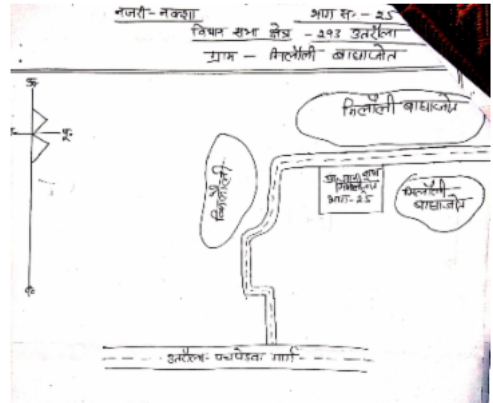 नजरी-नक्शा भाग सं.- 25
विधान सभा क्षेत्र - 293 उतरौला
ग्राम - मिलौली बाघाजोत
उ.
पू.
द.
मिलौली बाघाजोत
मिलौली
भाग-25
मिलौली
बाघाजोत
उतरौला- पचपेडवा मार्ग